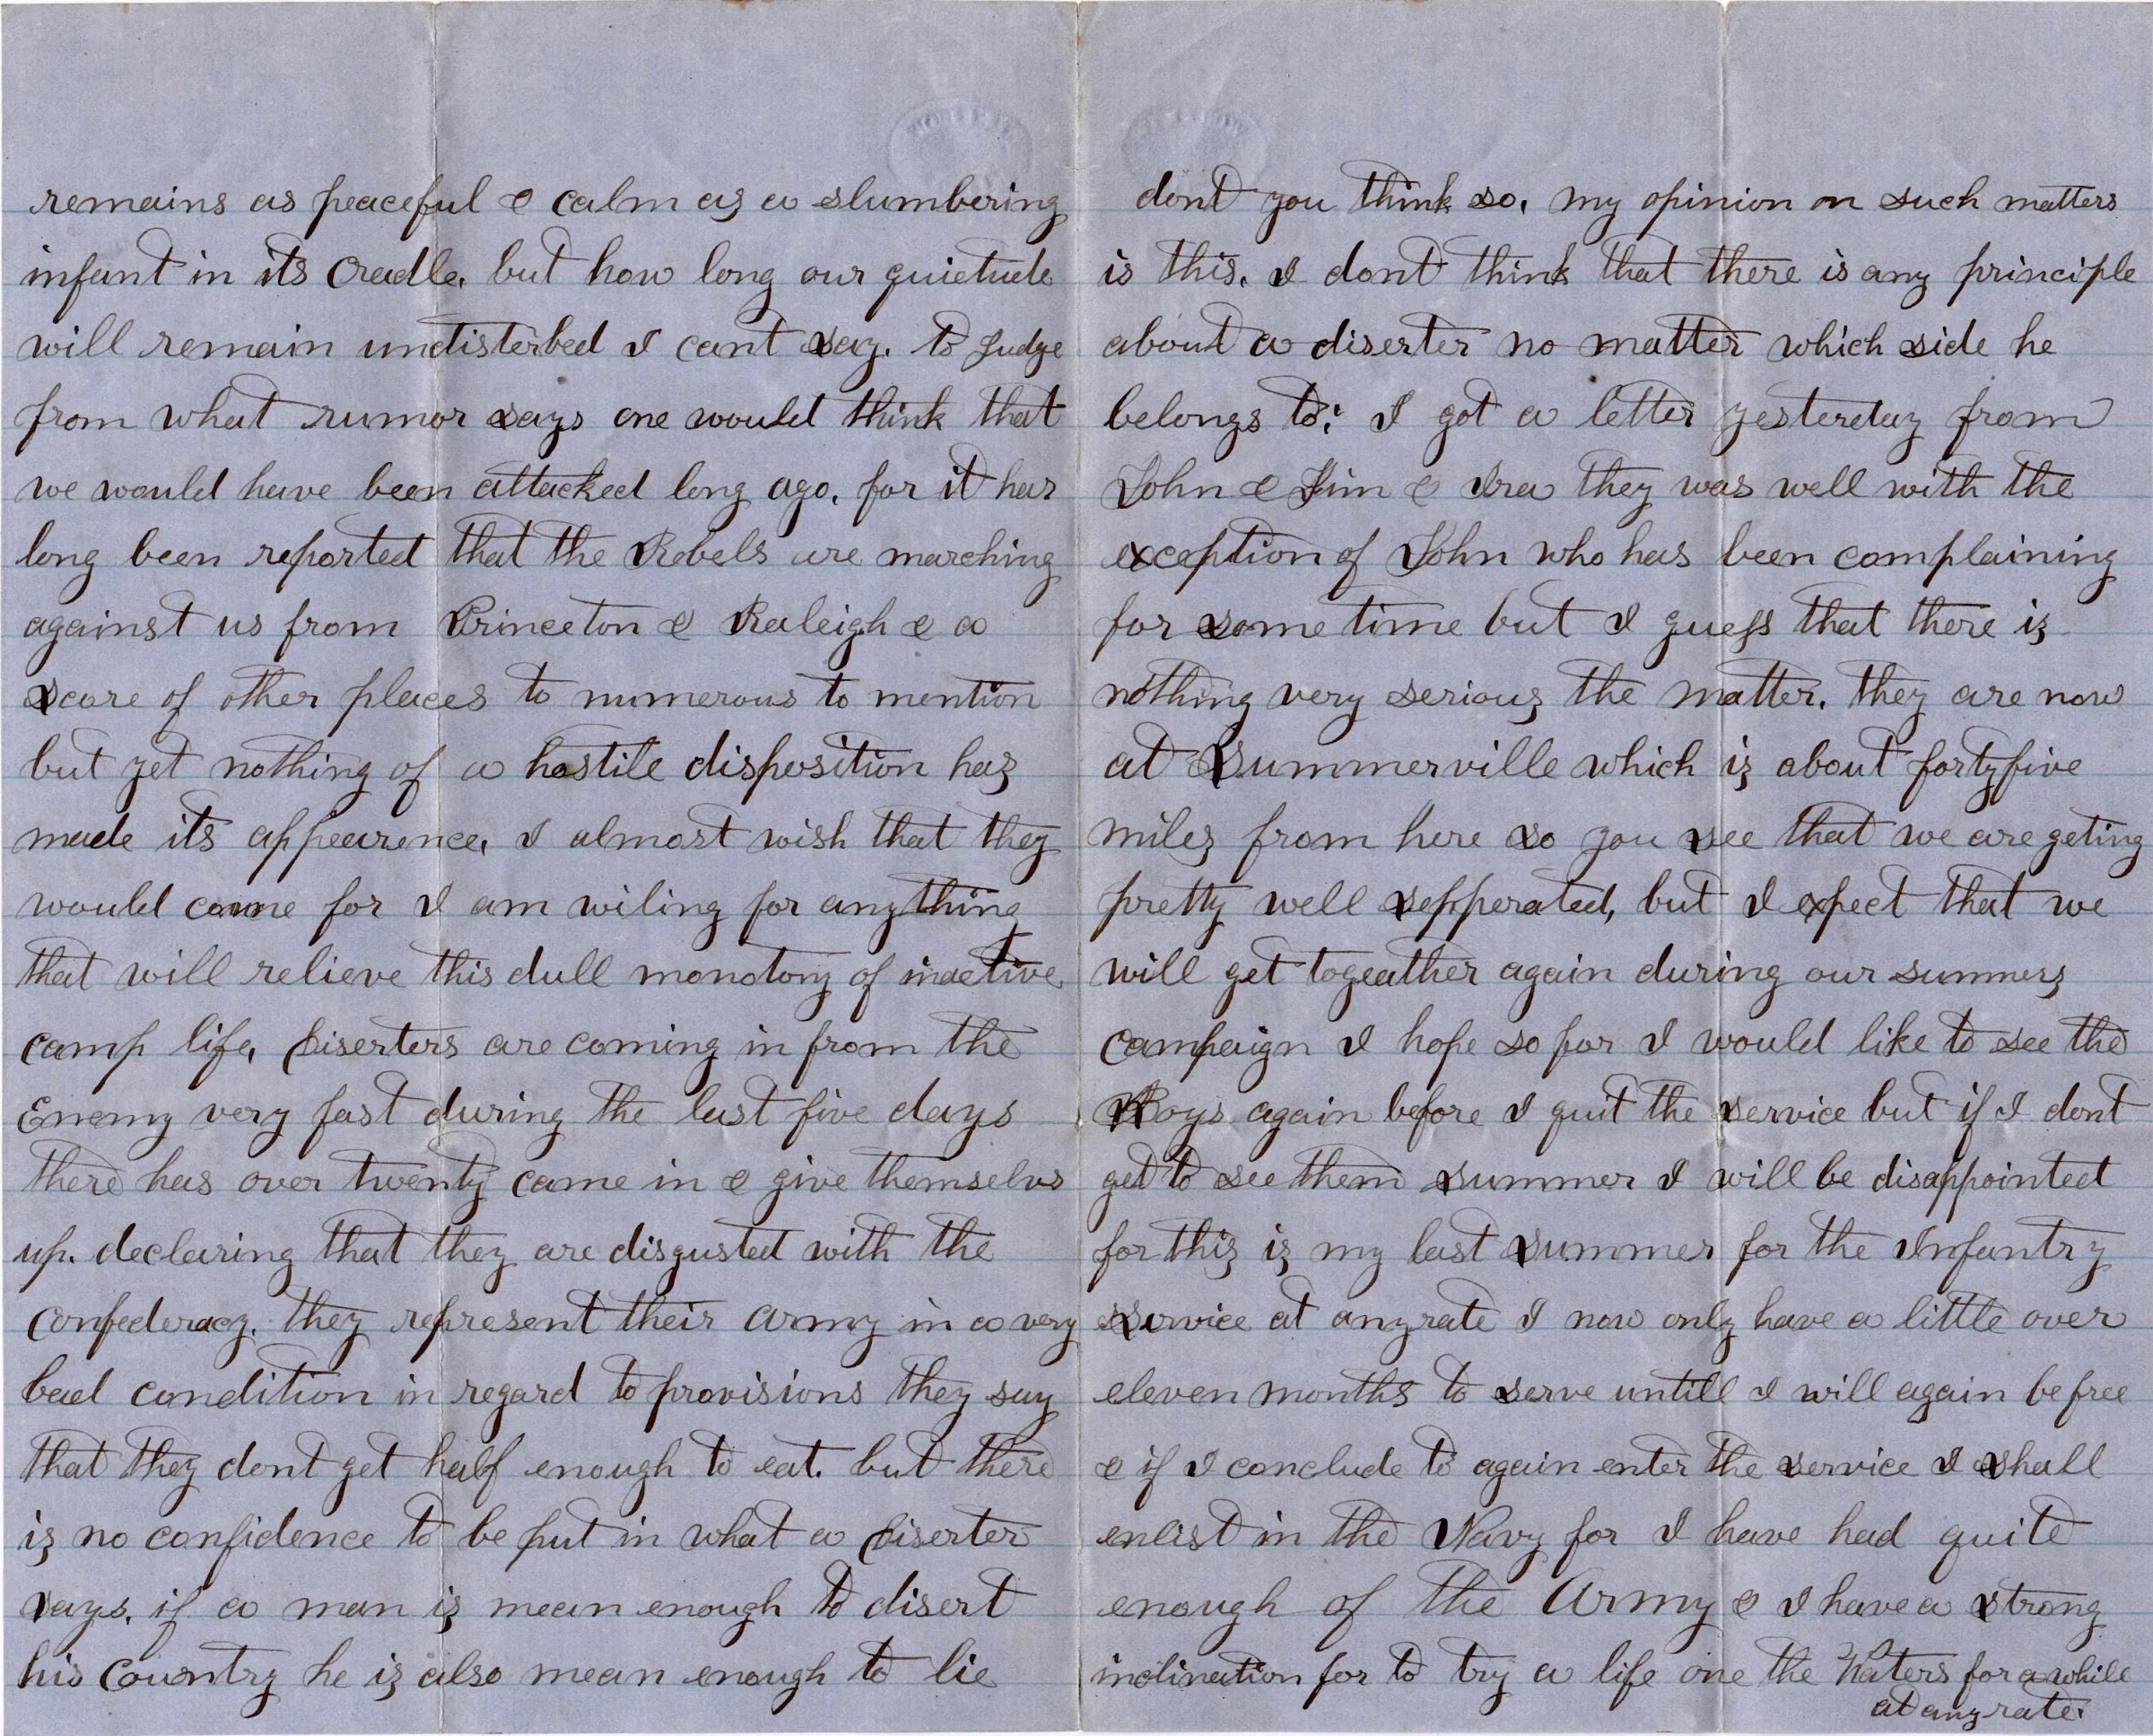 remains as peaceful & calm as a slumbering
infant in its Cradle. but how long our quietude
will remain undisterbed I cant say. to Judge
from what rumor says one would think that
we would have been attacked long ago. for it has
long been reported that the Rebels are marching
against us from Princeton & Raleigh & a
score of other places to numerous to mention
but yet nothing of a hostile disposition has
made its appearence. I almost wish that they
would come for I am wiling for anything
that will relieve this dull monotony of inactive
camp life. Diserters are coming in from the
Enemy very fast during the last five days
there has over twenty came in & give themselvs
up. declaring that they are disgusted with the
Confederacy. they represent their army in a very
bad condition in regard to provisions they say
that they dont get half enough to eat. but there
is no confidence to be put in what a Diserter
says. if a man is mean enough to disert
his Country he is also mean enough to lie
dont you think so. my opinion on such matters
is this. I dont think that there is any principle
about a diserter no matter which side he
belongs to. I got a letter yesterday from
John & Jim & Ira they was well with the
exception of John who has been complaining
for some time but I guess that there is
nothing very serious the matter. they are now
at Summerville which is about fortyfive
miles from here so you see that we are geting
pretty well sepperated, but I expect that we
will get togeather again during our summers
campaign I hope so for I would like to see the
Boys again before I quit the service but if I dont
get to see them summer I will be disappointed
for this is my last summer for the Infantry
service at anyrate I now only have a little over
eleven months to serve untill I will again be free
& if I conclude to again enter the service I shall
enlist in the Navy for I have had quite
enough of the Army & I have a strong
inclination for to try a life one the Waters for a while
at any rate.